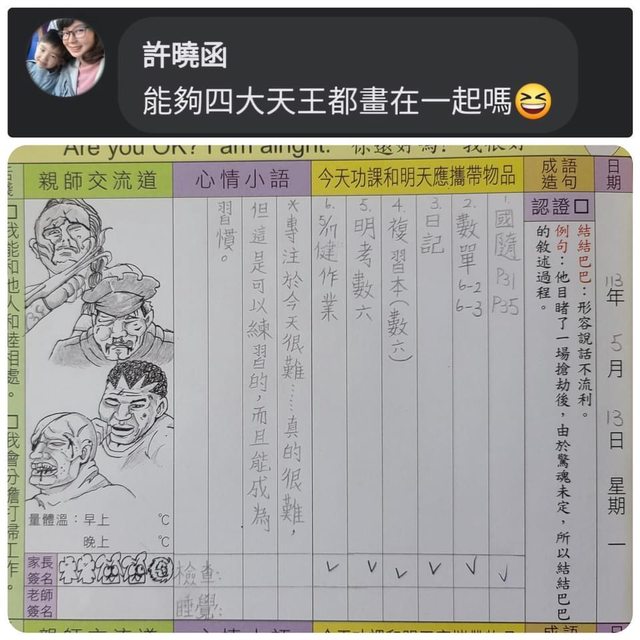 許曉函
能夠四大天王都畫在一起嗎😆
Are you OK? I am alright.
日期
113年5月13日 星期一
成語造句
認證□
結結巴巴:形容說話不流利。
例句:他目睹了一場搶劫後,由於驚魂未定,所以結結巴巴
的敘述過程。
今天功課和明天應攜帶物品
1.國隨P31 P35
2.數單6-2 6-3
3.日記
4.複習本(數六)
5.明考數六
6.5/17健作業
心情小語
*專注於今天很難……真的很難,
但這是可以練習的,而且能成為
習慣。
檢查:
睡覺:
親師交流道
量體溫:早上 ℃
晚上 ℃
家長簽名
老師簽名
□我能和他人和睦相處。
□我會分擔打掃工作。
親師交流道
心情小語
今天功課和明天應攜帶物品
成語